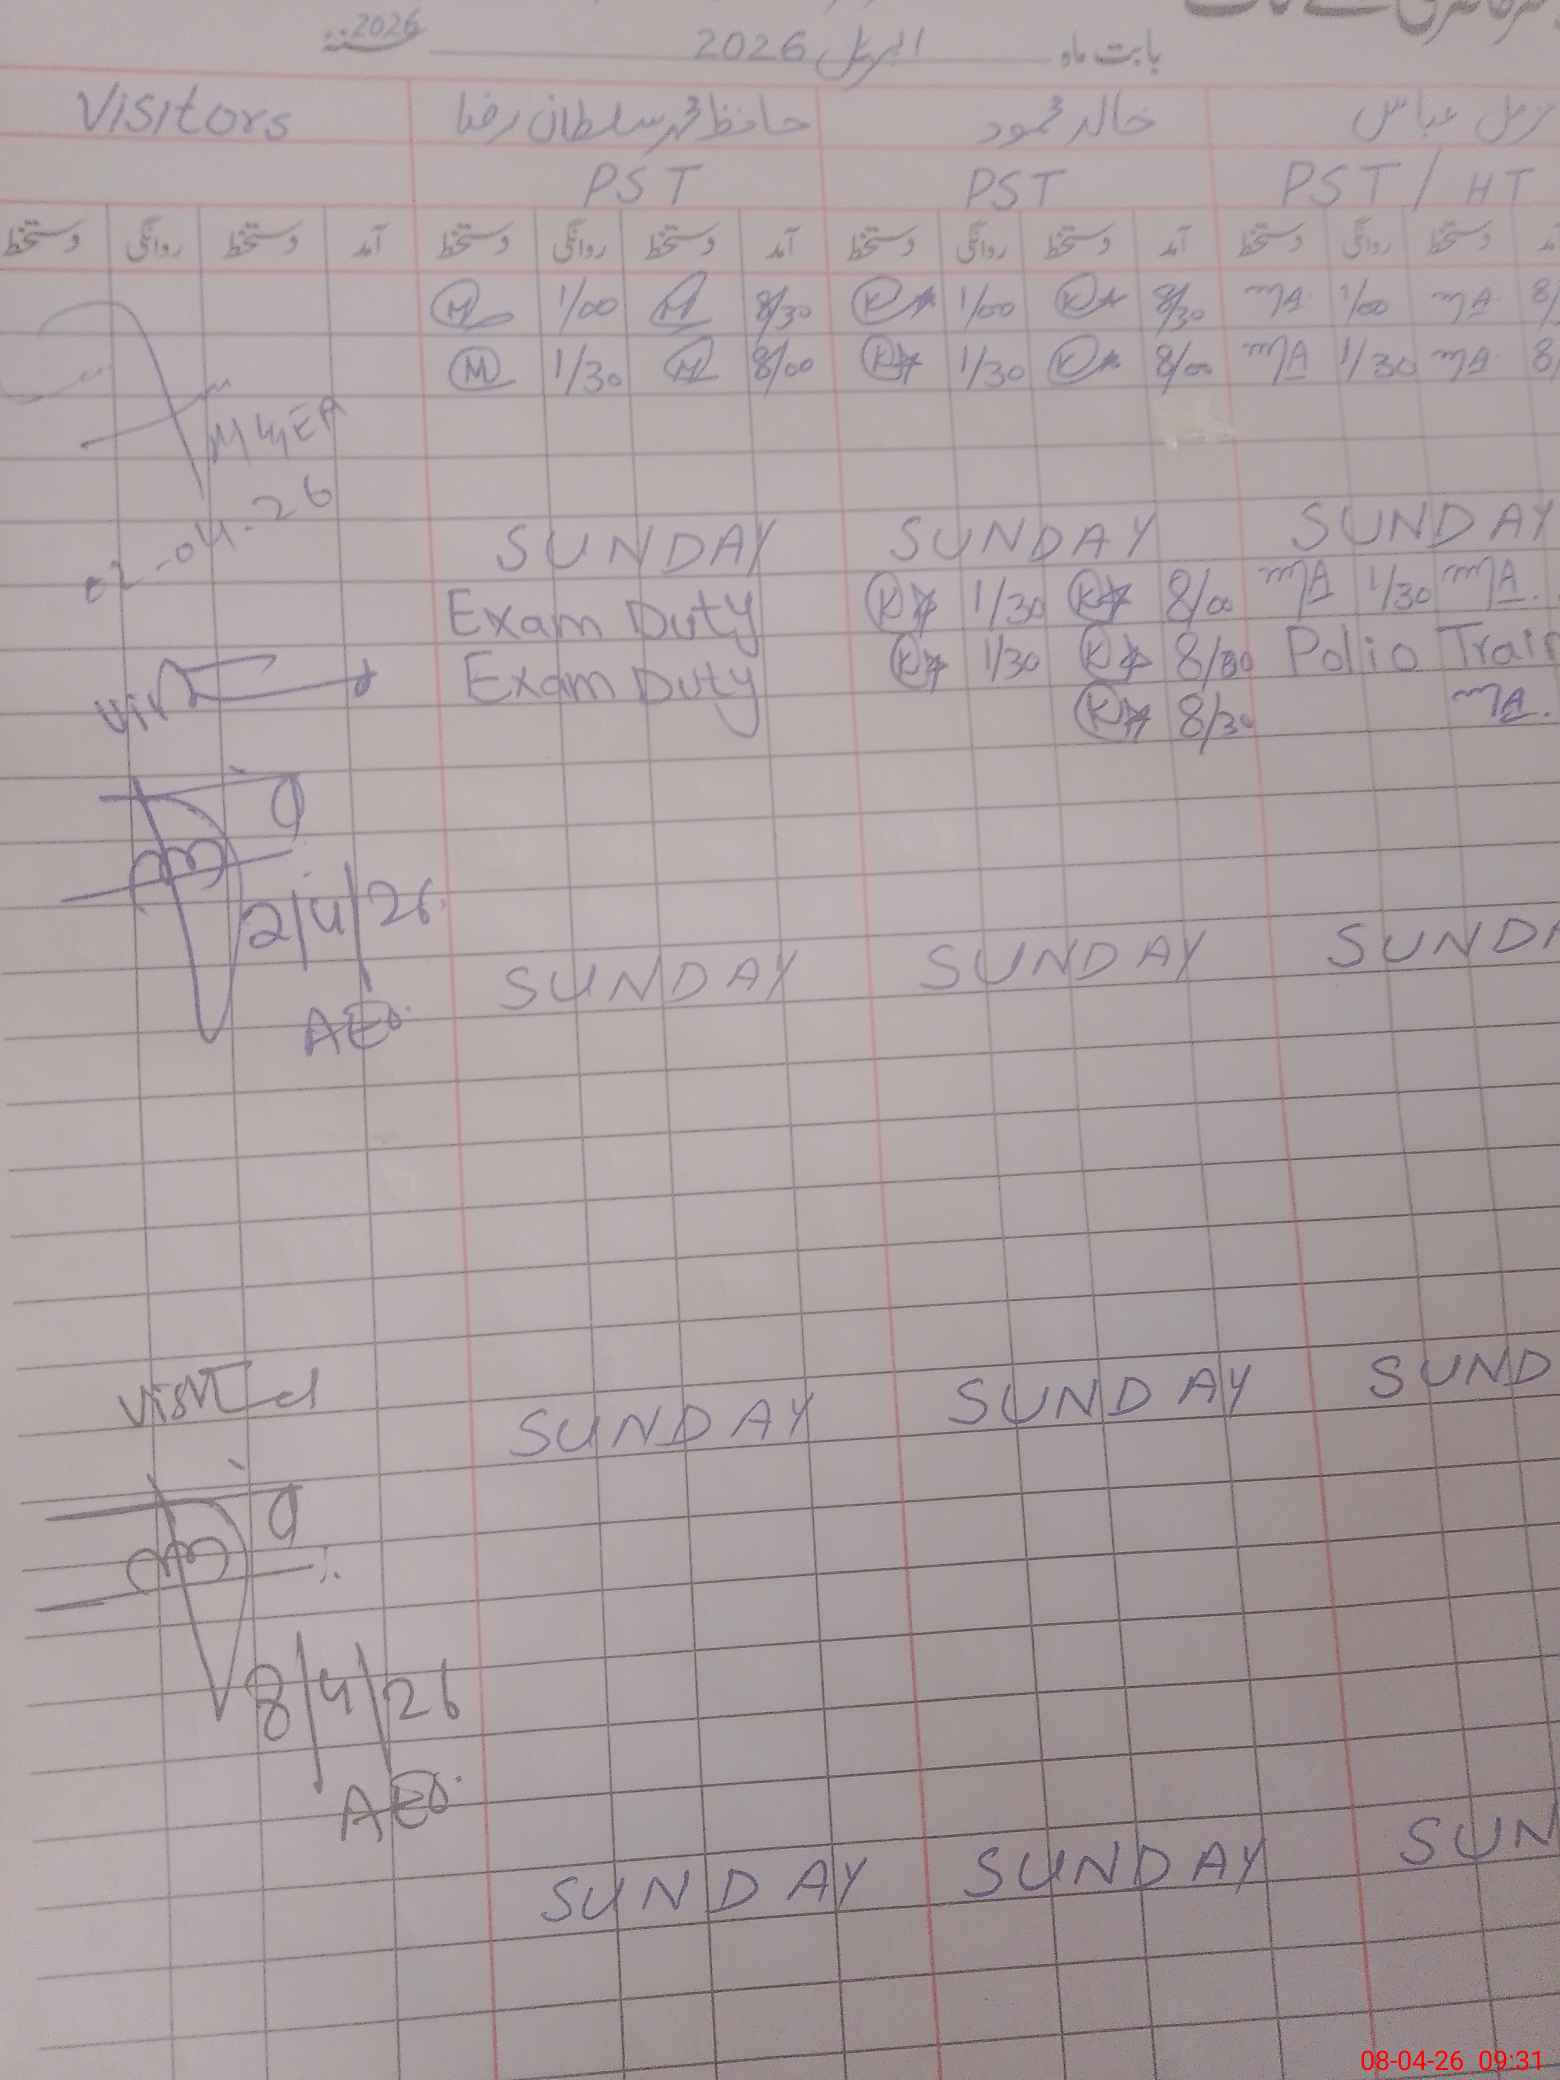 بابت ماہ اپریل 2026 2026
Visitors حافظ محمد سلطان رضا خالد محمود عباس
PST PST PST / HT
دستخط روانگی دستخط آمد دستخط روانگی دستخط آمد دستخط روانگی دستخط آمد دستخط روانگی دستخط
M 1/00 M 8/30 K 1/00 K 8/30 MA 1/00 MA 8/
M 1/30 M 8/00 K 1/30 K 8/00 MA 1/30 MA 8/
02-04-26
SUNDAY SUNDAY SUNDAY
Exam Duty K 1/30 K 8/00 MA 1/30 MA
Exam Duty K 1/30 K 8/00 Polio Train
K 8/30 MA
2/4/26
AEO
SUNDAY SUNDAY SUNDA
Visited
SUNDAY SUNDAY SUND
8/4/26
AEO
SUNDAY SUNDAY SUN
08-04-26 09:31